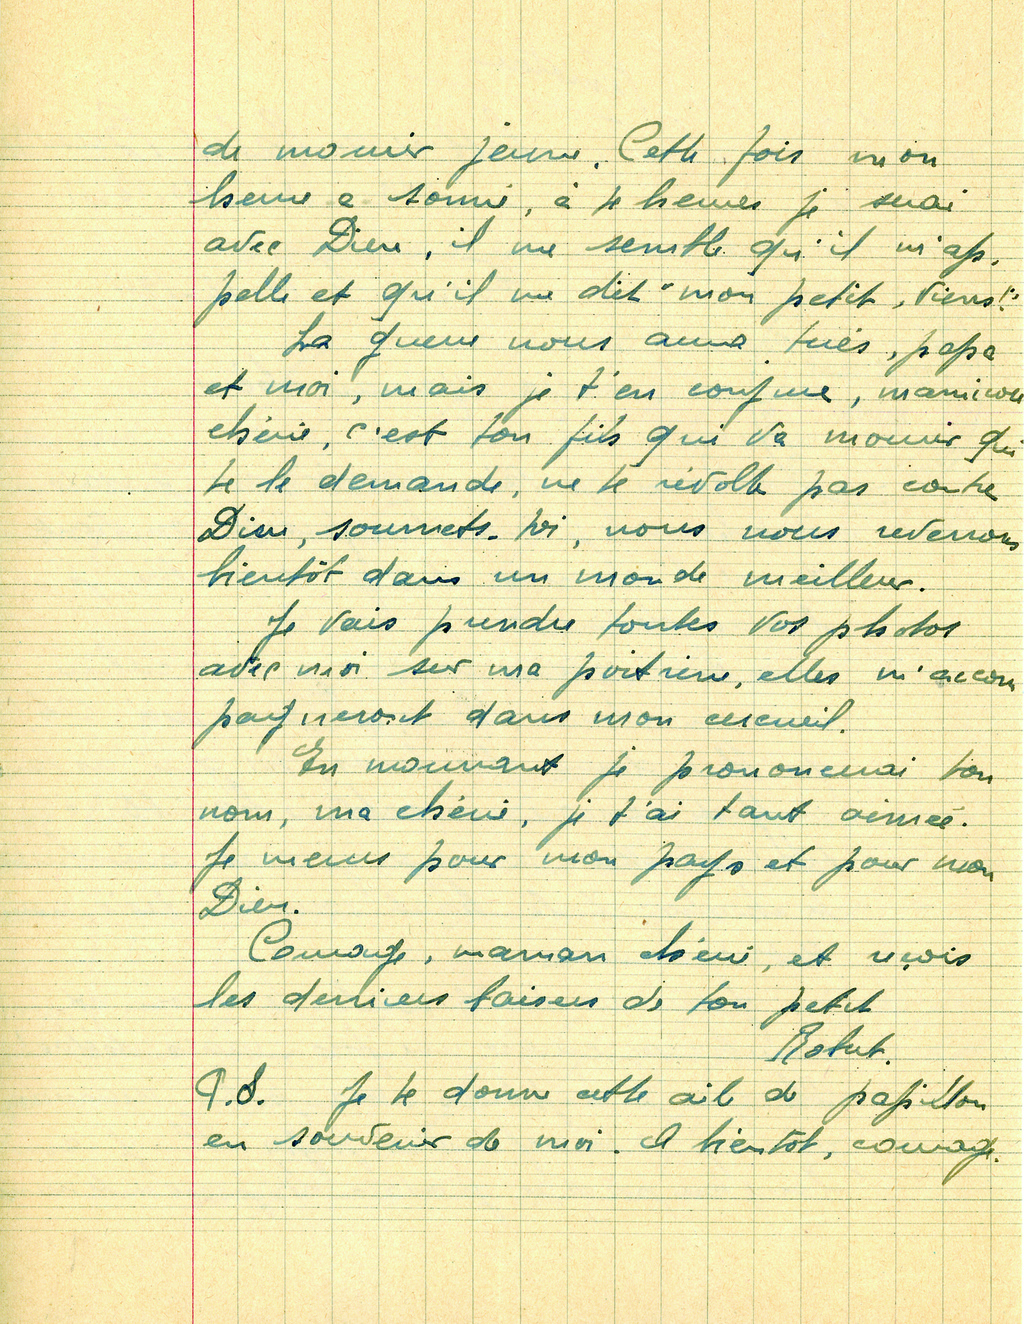 de mourir jeune. Cette fois mon
heure a sonné, à 7 heures je serai
avec Dieu, il me semble qu'il m'ap-
pelle et qu'il me dit "mon petit, viens!"
La guerre nous aura tués, papa
et moi, mais je t'en conjure, maman
chérie, c'est ton fils qui va mourir qui
te le demande, ne te révolte pas contre
Dieu, soumets-toi, nous nous reverrons
bientôt dans un monde meilleur.
Je vais prendre toutes vos photos
avec moi sur ma poitrine, elles m'accom
pagneront dans mon cercueil.
En mourant je prononcerai ton
nom, ma chérie, je t'ai tant aimée.
Je meurs pour mon pays et pour mon
Dieu.
Courage, maman chérie, et reçois
les derniers baisers de ton petit
Robert.
P.S. Je te donne cette aile de papillon
en souvenir de moi. A bientôt, courage.